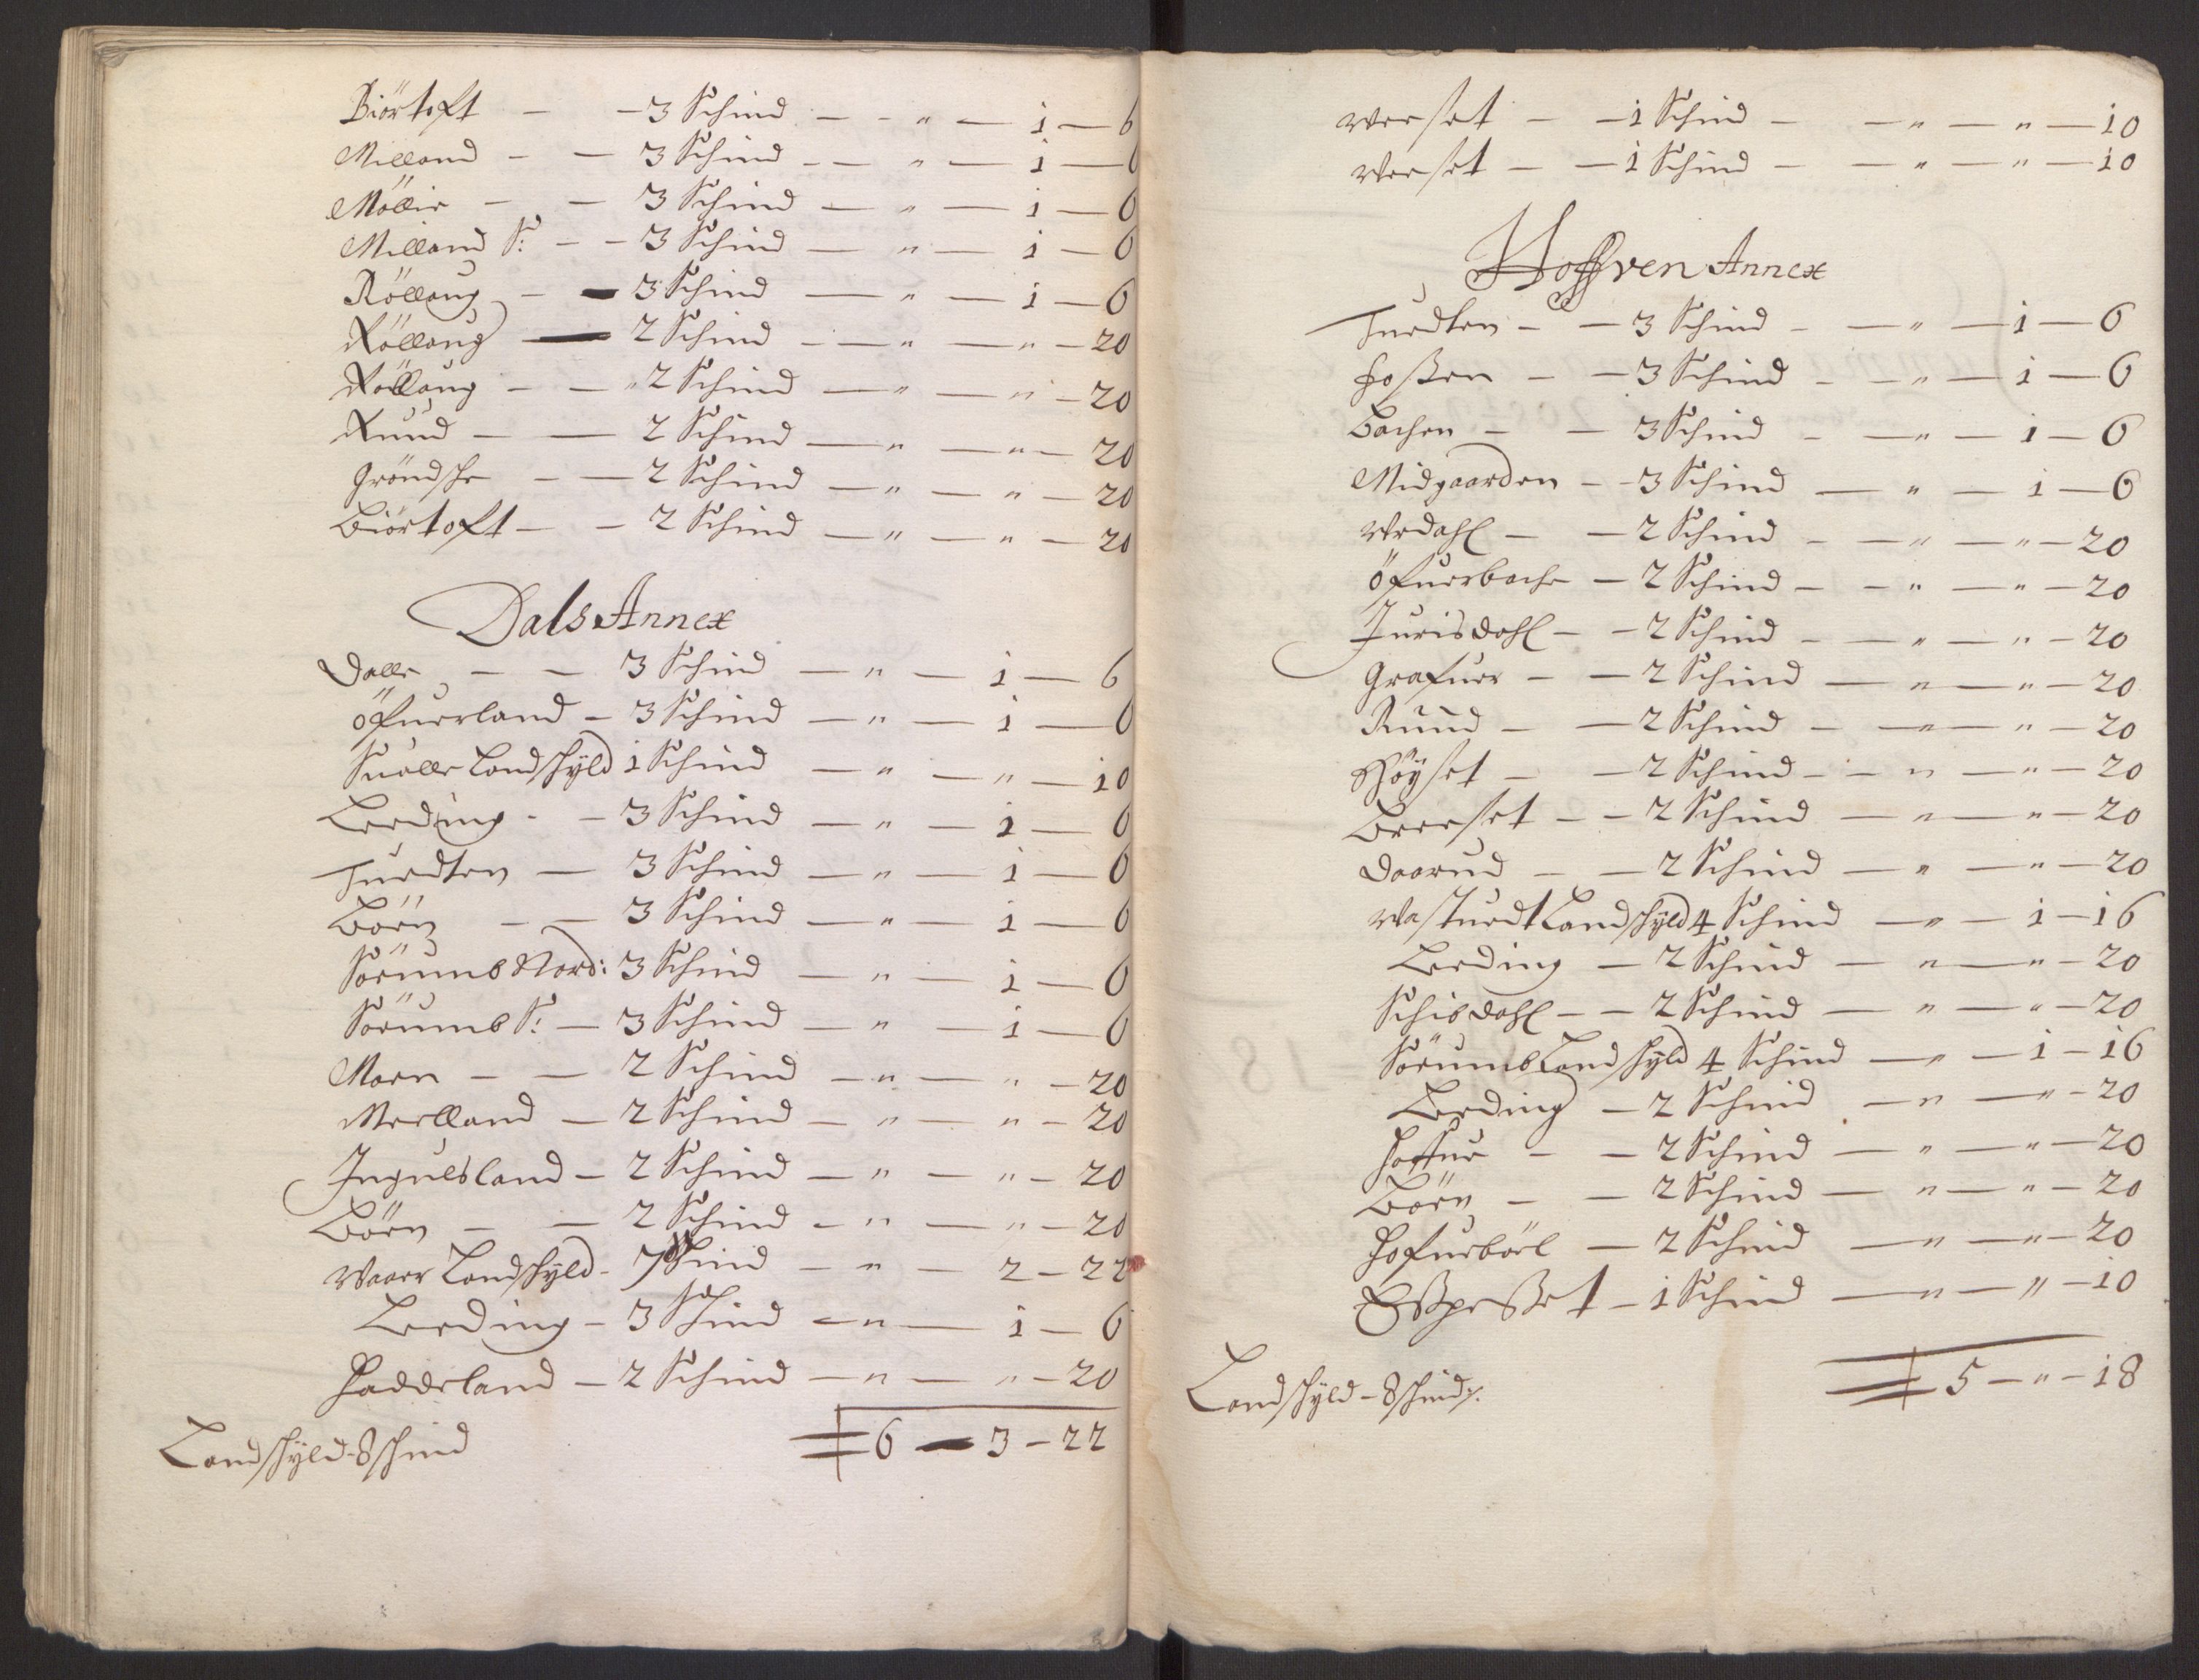 Biörtofft - - 3 Schind - - " - 1 - 6
Milland - - 3 Schind - - " - 1 - 6
Möllir - - 3 Schind - " - 1 - 6
Milland S: - - 3 Schind - " - 1 - 6
Röllaug - - 3 Schind - " - 1 - 6
Röllaug - 2 Schind - - " - " - 20
Röllaug - - " 2 Schind - " - " - 20
Ruud - - 2 Schind - " - " - 20
Gröndshe - - 2 Schind - " - " - 20
Biörtofft - - 2 Schind - " - " - 20
Dals Annex
Dalle - - 3 Schind - " - 1 - 6
Öfuerland - 3 Schind - " - 1 - 6
Suolle Landshyld 1 Schind - " - " - 10
Leeding - - 3 Schind - " - 1 - 6
Tuedten - 3 Schind - " - 1 - 6
Börn - - 3 Schind - " - 1 - 6
Sörumb Nord: 3 Schind - " - 1 - 6
Sörumb S: - 3 Schind - " - 1 - 6
Moen - - 2 Schind - " - " - 20
Merlland - 2 Schind - " - " - 20
Ingulsland - 2 Schind - " - " - 20
Börn - - 2 Schind - " - " - 20
Waaer Landshyld - 7 Schind - " - 2 - 22
Leeding - 3 Schind - " - 1 - 6
Haddeland - 2 Schind - " - " - 20
6 - 3 - 22
Landshyld - 8 shind
Weeset - - 1 Schind - - " - " - 10
Weeset - - 1 Schind - - " - " - 10
Hoffven Annex
Tuedten - - 3 Schind - - " - 1 - 6
Foßen - - 3 Schind - - " - 1 - 6
Bachen - - 3 Schind - - " - 1 - 6
Midgaarden - - 3 Schind - " - 1 - 6
Wrdahl - - 2 Schind - - " - " - 20
Öfuerbache - 2 Schind - - " - " - 20
Jurisdahl - - 2 Schind - - " - " - 20
Grafuer - - 2 Schind - " - " - 20
Ruud - - 2 Schind - - " - " - 20
Höyset - - 2 Schind - - " - " - 20
Breeset - - 2 Schind - " - " - 20
Daarud - - 2 Schind - " - " - 20
Wasturdt Landshyld 4 Schind - " - 1 - 16
Leeding - 2 Schind - " - " - 20
Schisdahl - - 2 Schind - " - " - 20
Sörumb Landshyld 4 Schind - " - 1 - 16
Leeding - 2 Schind - " - " - 20
- - 2 Schind - " - " - 20
Börn - - 2 Schind - " - " - 20
Hofuerböel - 2 Schind - " - " - 20
- 1 Schind - " - " - 10
5 - " - 18
Landshyld - 8 shind